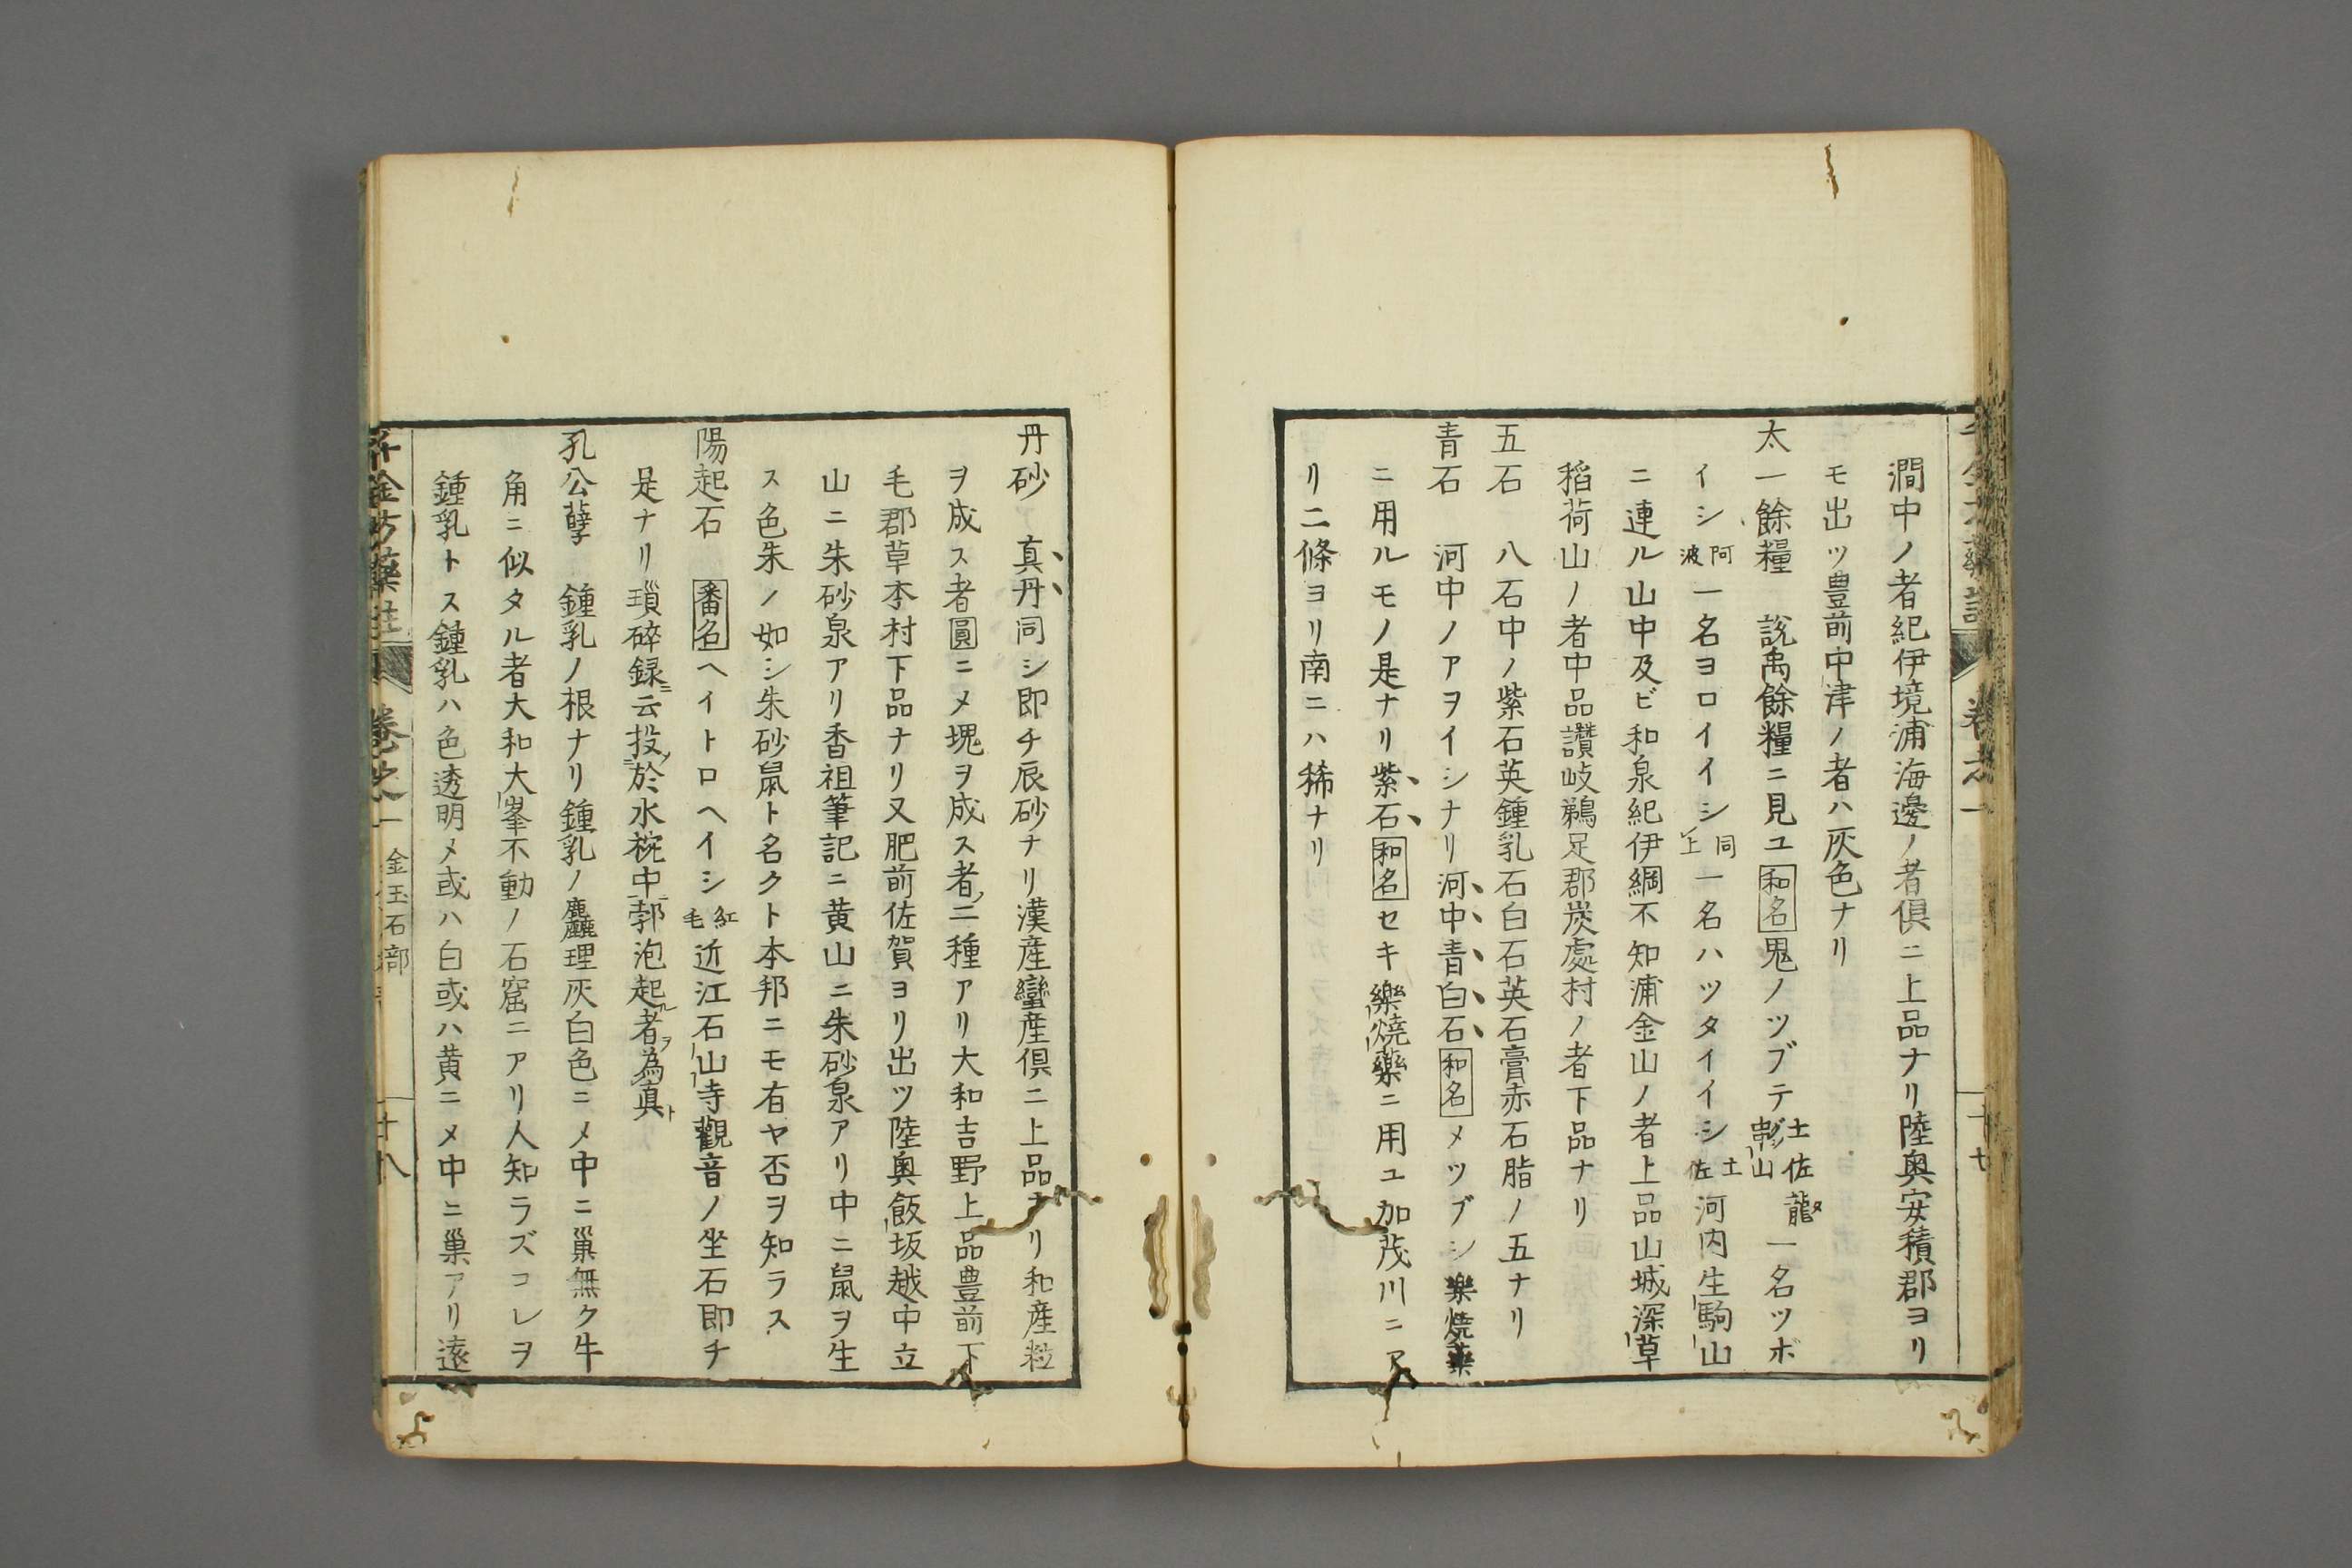 澗中ノ者紀伊境浦海邊ノ者倶ニ上品ナリ陸奥安積郡ヨリ
モ出ツ豊前中津ノ者ハ灰色ナリ
太一餘糧 説禹餘糧ニ見ユ和名鬼ノツブテ土佐龍串山一名ツボ
イシ阿波一名ヨロイイシ同上一名ハツタイイシ土佐河内生駒山
ニ連ル山中及ビ和泉紀伊綱不知浦金山ノ者上品山城深草
稻荷山ノ者中品讃岐鵜足郡炭處村ノ者下品ナリ
五石 八石中ノ紫石英鍾乳石白石英石膏赤石脂ノ五ナリ
青石 河中ノアヲイシナリ河中青白石和名メツブシ樂焼薬
ニ用ルモノ是ナリ紫石和名セキ樂燒藥ニ用ユ加茂川ニア
リ二條ヨリ南ニハ稀ナリ
丹砂 真丹同シ即チ辰砂ナリ漢産蠻産倶ニ上品ナリ和産粒
ヲ成ス者圓ニメ塊ヲ成ス者ノ二種アリ大和吉野上品豊前下
毛郡草本村下品ナリ又肥前佐賀ヨリ出ツ陸奥飯坂越中立
山ニ朱砂泉アリ香祖筆記ニ黄山ニ朱砂泉アリ中ニ鼠ヲ生
ス色朱ノ如シ朱砂鼠ト名クト本邦ニモ有ヤ否ヲ知ラス
陽起石 番名ヘイトロヘイシ紅毛近江石山寺觀音ノ坐石即チ
是ナリ瑣碎録ニ云投ノ於水椀中ニ郭泡起ル者ヲ為真ト
孔公孽 鍾乳ノ根ナリ鍾乳ノ麤理灰白色ニメ中ニ巣無ク牛
角ニ似タル者大和大峯不動ノ石窟ニアリ人知ラズコレヲ
鍾乳トス鍾乳ハ色透明メ或ハ白或ハ黄ニメ中ニ巣アリ遠
卷之一 金玉石部 十八